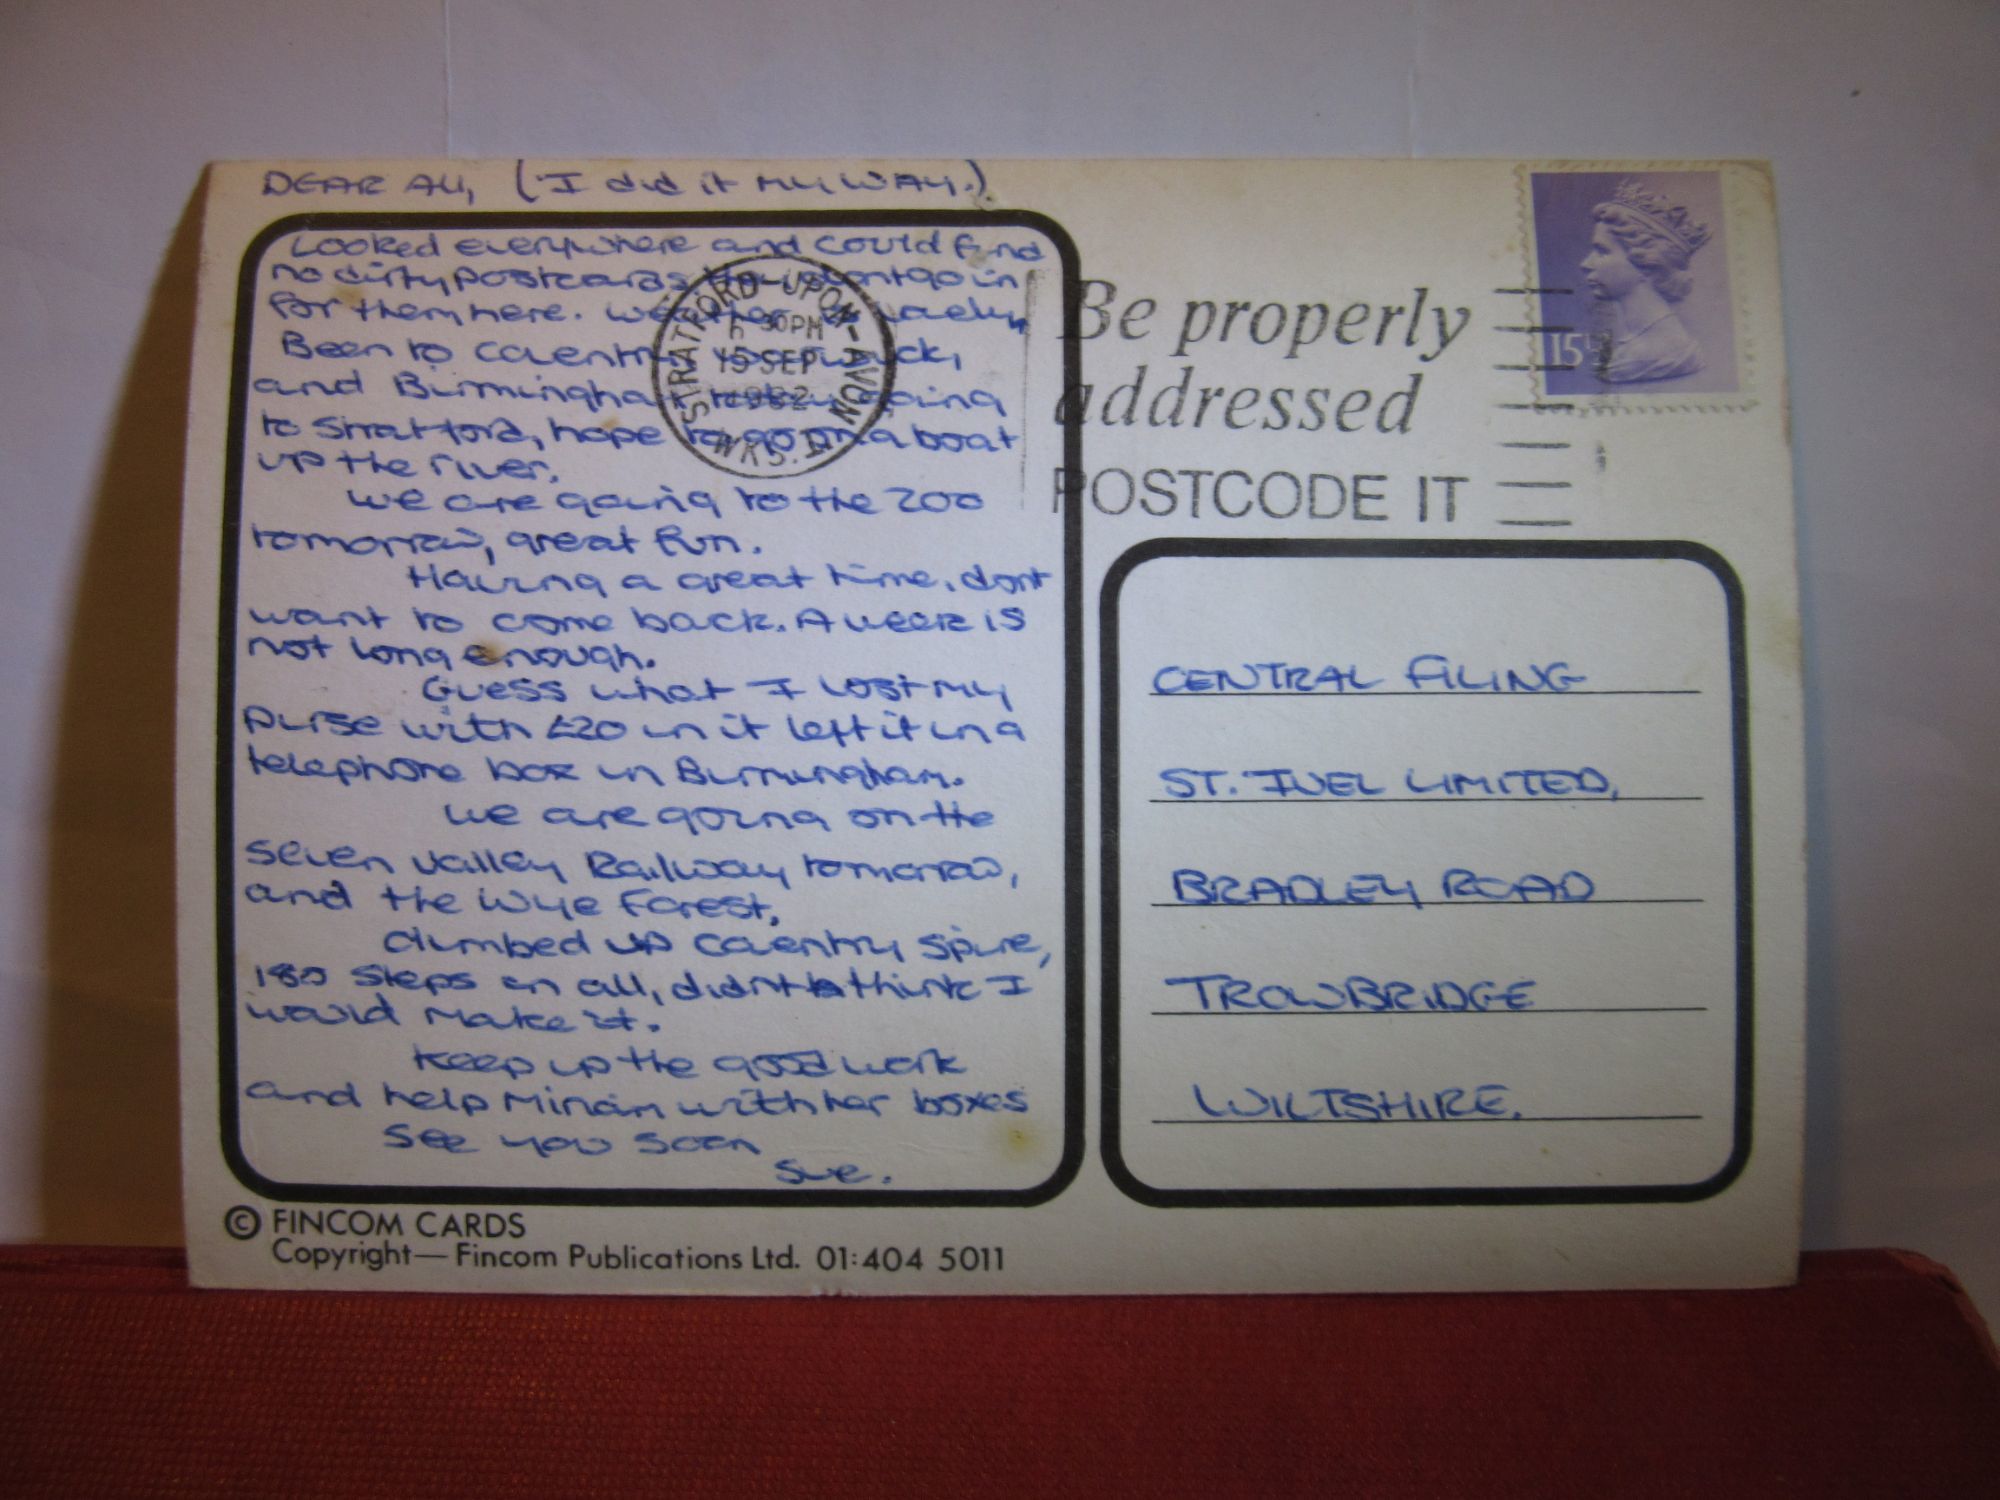 DEAR ALL, ("I did it MY WAY.)
Looked everywhere and could find
no dirty postcards they dont go in
for them here. weather lovely,
Been to coventry, Warwick,
and Birmingham today going
to Stratford, hope to go on a boat
up the river.
we are going to the zoo
tomorrow, great fun.
Having a great time, dont
want to come back. A week is
not long enough.
Guess what I lost my
purse with £20 in it left it in a
telephone box in Birmingham.
we are going on the
Seven Valley Railway tomorrow,
and the Wye Forest.
climbed up coventry Spire,
180 steps in all, didnt think I
would make it.
Keep up the good work
and help Miriam with her boxes
See you soon
Sue.
STRATFORD-UPON-AVON
30PM
15 SEP
1982
WKS.
Be properly
addressed
POSTCODE IT
15
CENTRAL FILING
ST. IVEL LIMITED,
BRADLEY ROAD
TROWBRIDGE
WILTSHIRE.
© FINCOM CARDS
Copyright— Fincom Publications Ltd. 01:404 5011